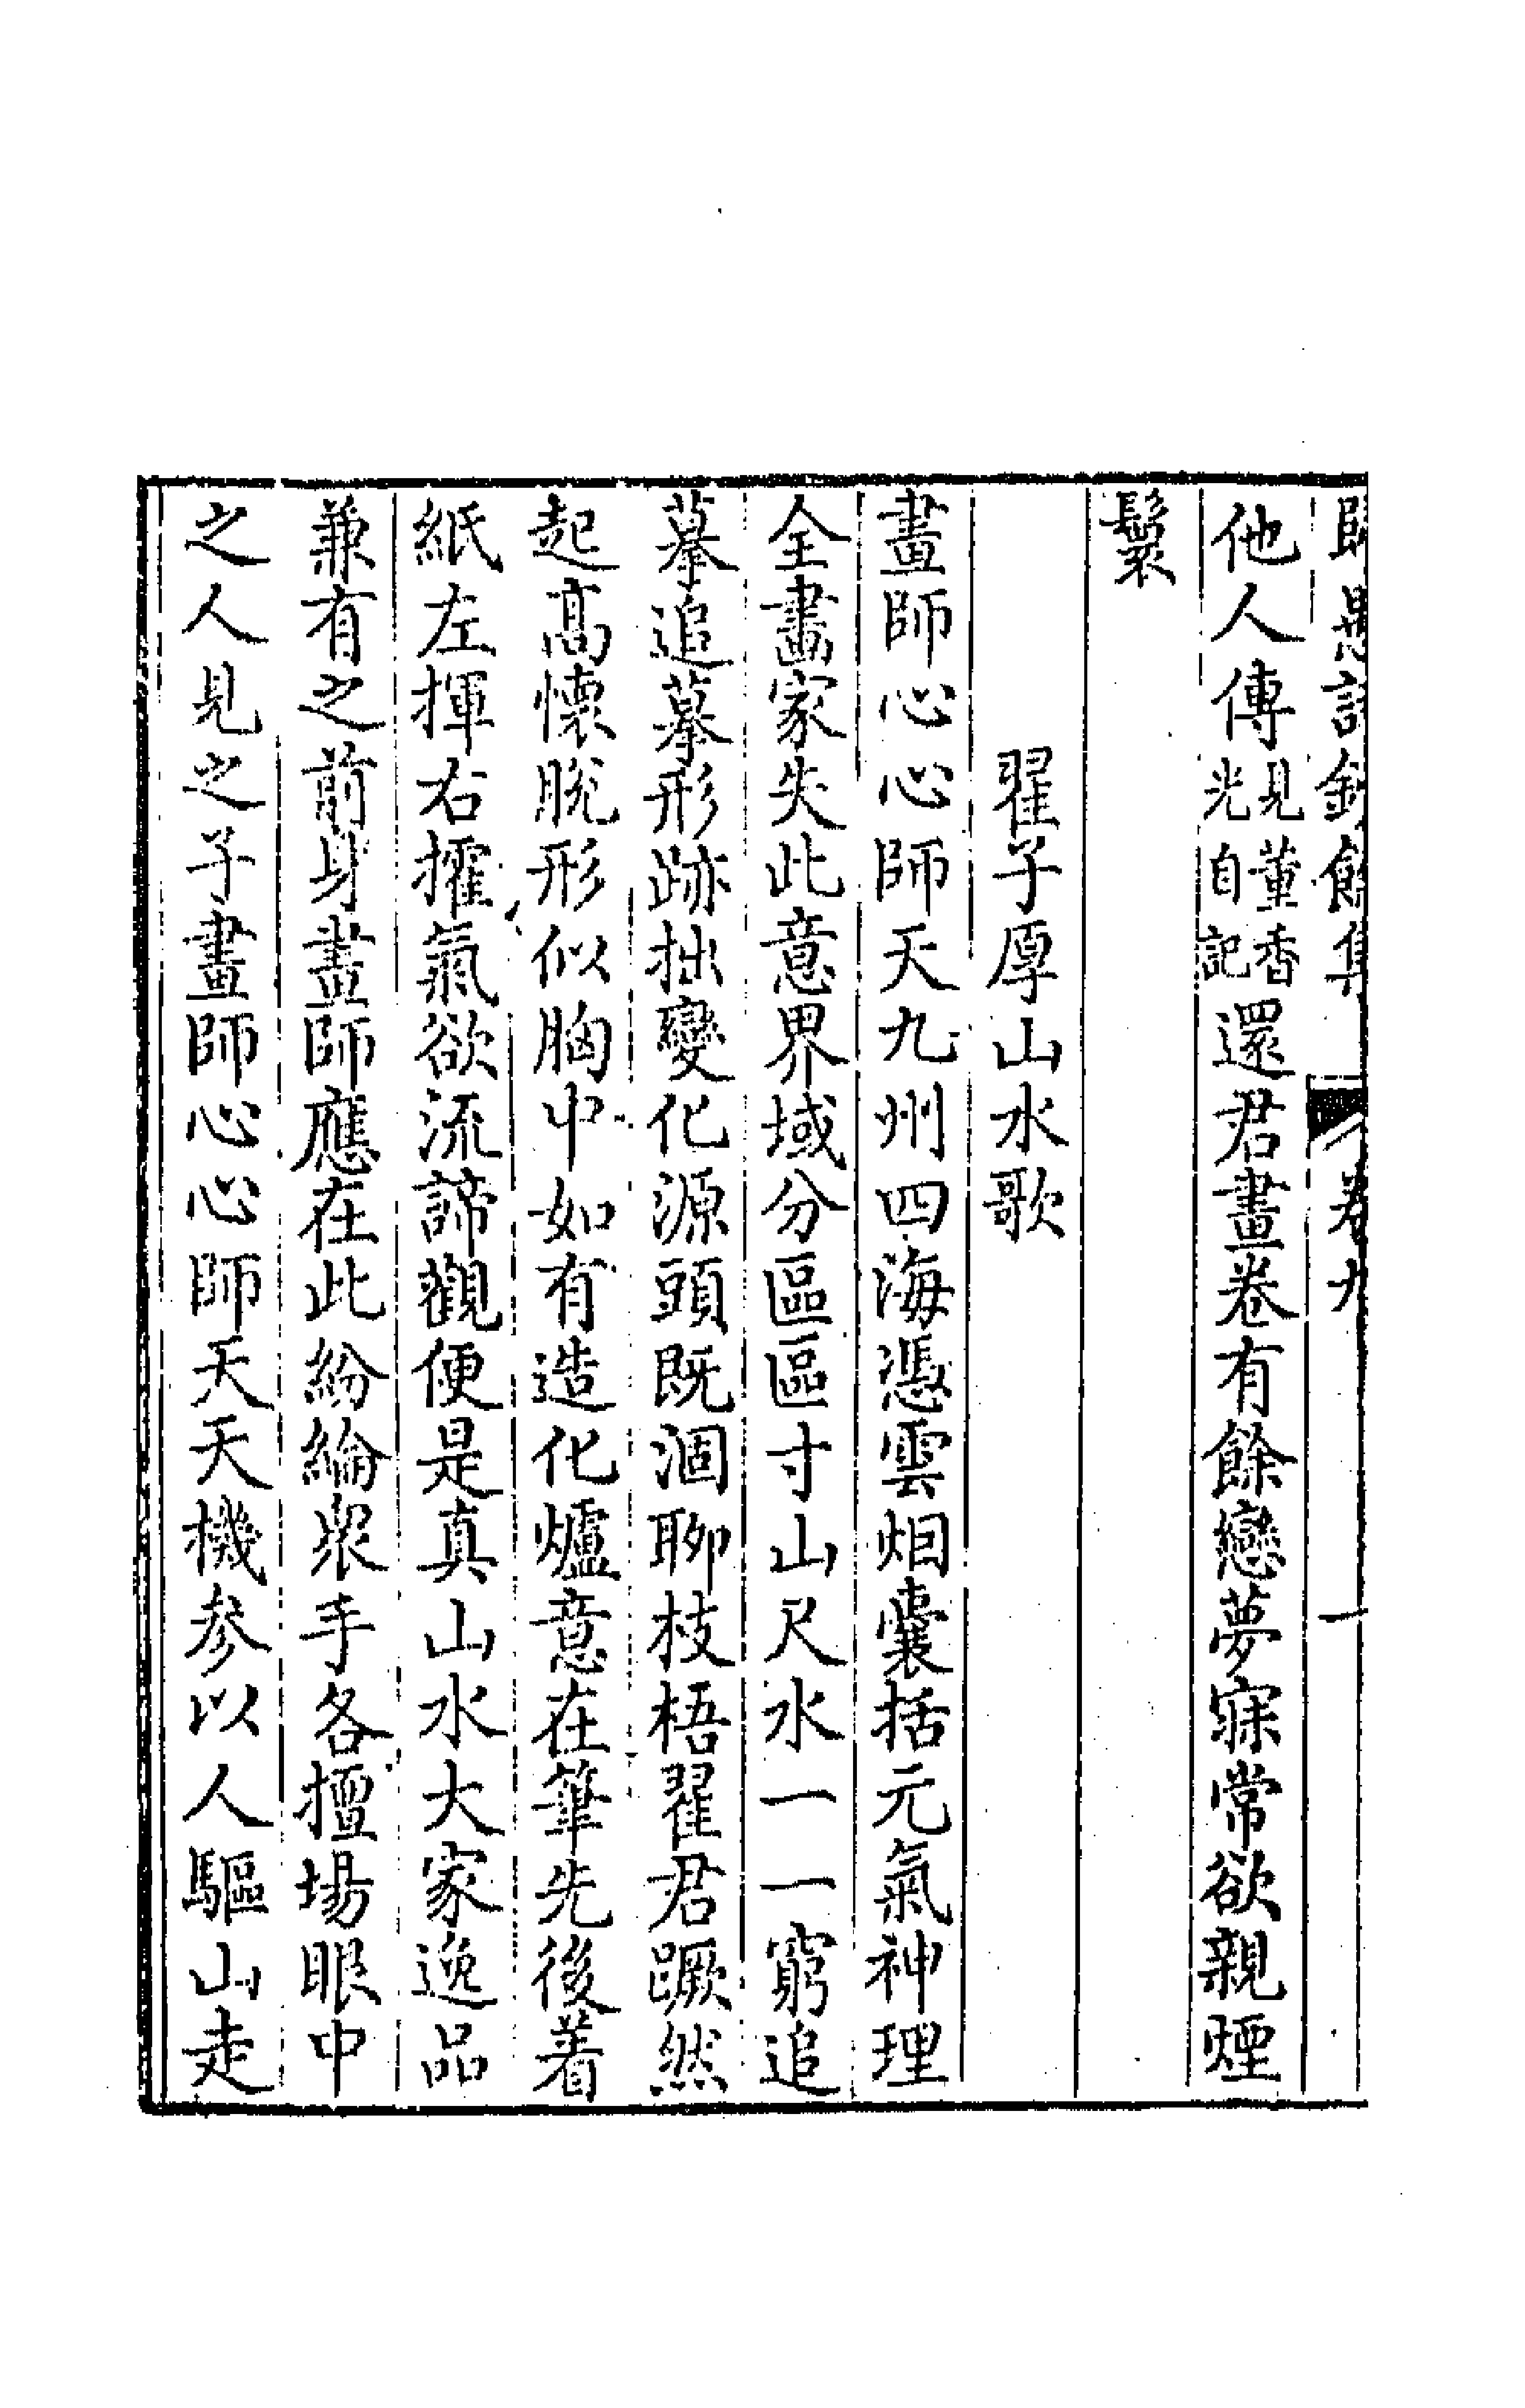 歸愚詩鈔餘集 卷九 一
他人傳見董香光自記還君畫卷有餘戀夢寐常欲親煙
鬟
翟子厚山水歌
畫師心心師天九州四海憑雲烟囊括元氣神理
全畫家失此意界域分區區寸山尺水一一窮追
摹追摹形跡拙變化源頭既涸聊枝梧翟君蹶然
起高懷脫形似胸中如有造化爐意在筆先後着
紙左揮右攉氣欲流諦觀便是真山水大家逸品
兼有之前身畫師應在此紛綸眾手各擅場眼中
之人見之子畫師心心師天天機參以人驅山走